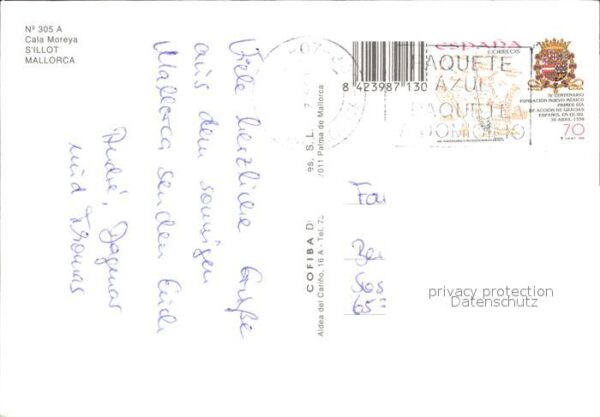 Nº 305 A
Cala Moreya
S'ILLOT
MALLORCA
Viele herzliche Grüße
aus dem sonnigen
Mallorca senden Euch
André, Dagmar
und Thomas
8 423987 130
COFIBA D
Aldea del Cariño, 16 A - Tel. 72
es, S. L.
7011 Palma de Mallorca
CORREOS
PAQUETE
AZUL
PAQUETE
A DOMICILIO
IV CENTENARIO
FUNDACIÓN NUEVO MÉXICO
PRIMER DÍA
DE ACCIÓN DE GRACIAS
ESPAÑOL EN EE.UU.
30 ABRIL 1598
70
Fa
655
privacy protection
Datenschutz